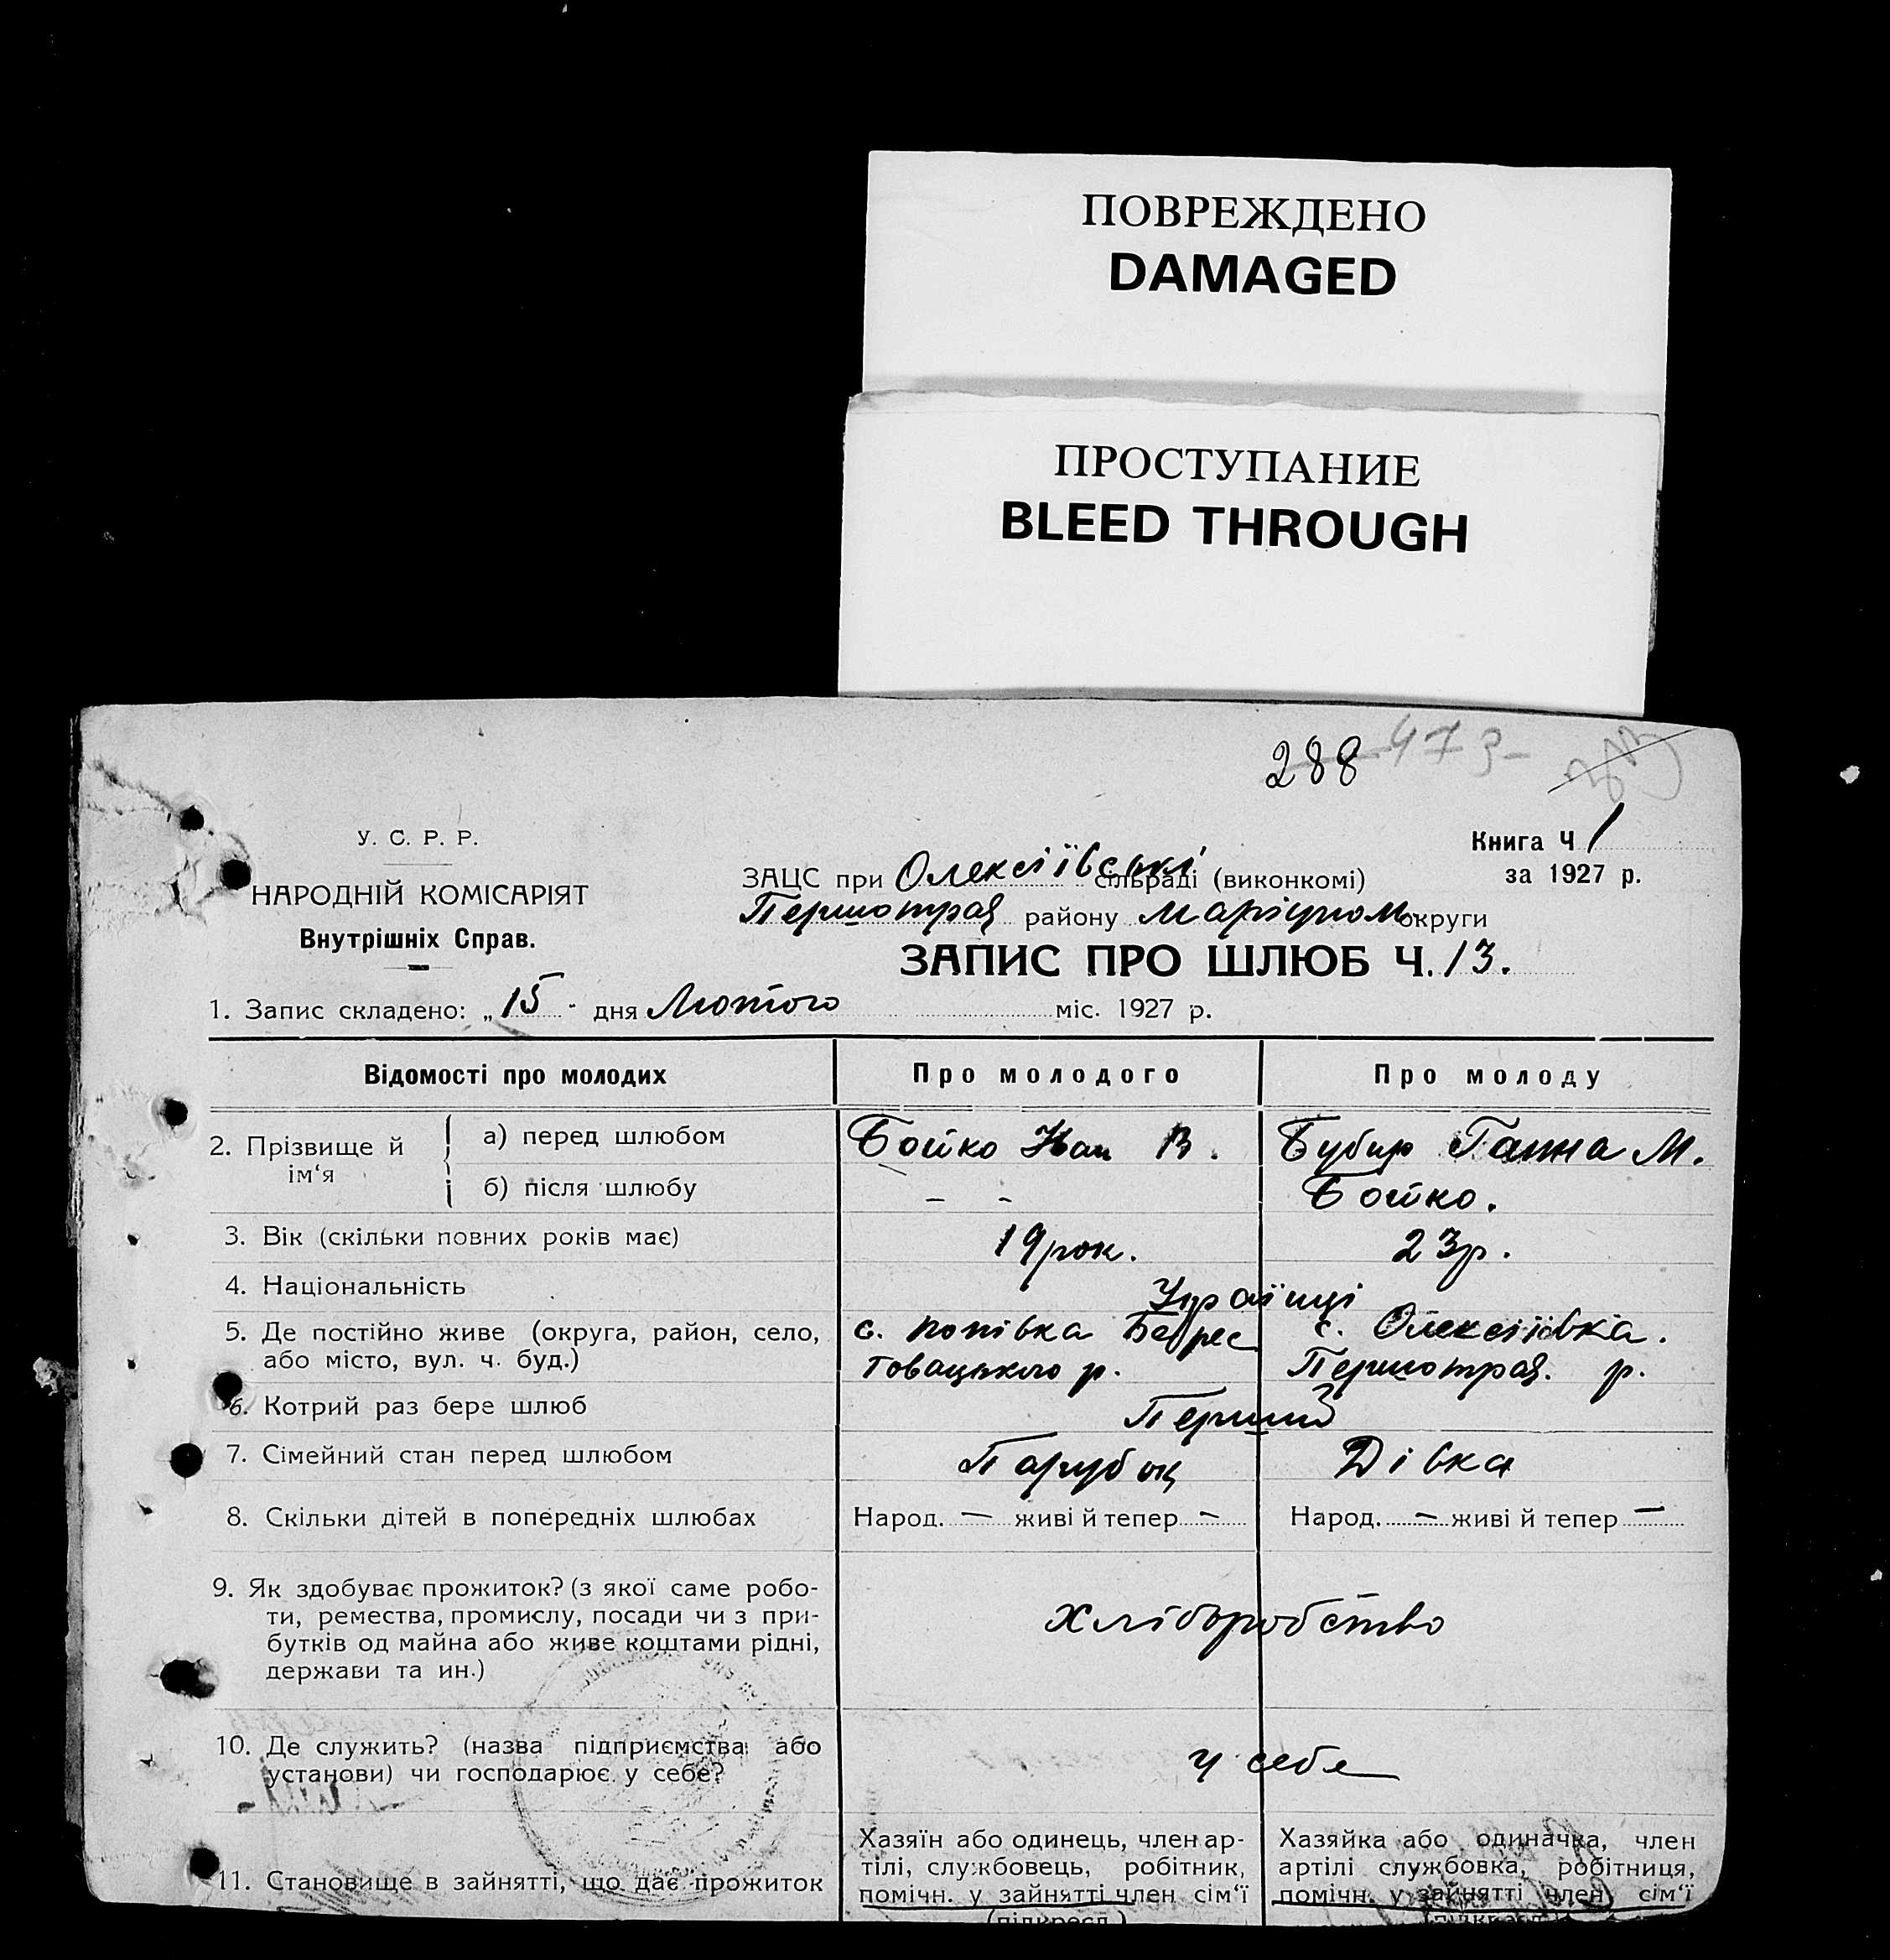 ПОВРЕЖДЕНО
DAMAGED
ПРОСТУПАНИЕ
BLEED THROUGH
288 473
У. С. Р. Р.
НАРОДНІЙ КОМІСАРІЯТ
Внутрішніх Справ.
Книга Ч 1
за 1927 р.
ЗАЦС при Олексіївські сільраді (виконкомі)
Першотрав району Маріупом округи
ЗАПИС ПРО ШЛЮБ Ч. 13.
1. Запис складено: „15" дня Лютого міс. 1927 р.
Відомості про молодих Про молодого Про молоду
2. Прізвище й ім‘я
а) перед шлюбом Бойко Іван В. Бубир Ганна М.
б) після шлюбу - - Бойко.
3. Вік (скільки повних років має) 19 рок. 23 р.
4. Національність Українці
5. Де постійно живе (округа, район, село, с. Попівка Берес с. Олексіївка.
або місто, вул. ч. буд.) товацького р. Першотрав. р.
6. Котрий раз бере шлюб Перший
7. Сімейний стан перед шлюбом Парубок Дівка
8. Скільки дітей в попередніх шлюбах Народ. — живі й тепер — Народ. — живі й тепер —
9. Як здобуває прожиток? (з якої саме робо-
ти, ремества, промислу, посади чи з при-
бутків од майна або живе коштами рідні,
держави та ин.)
Хліборобство
10. Де служить? (назва підприємства або
установи) чи господарює у себе?
у себе
11. Становище в зайнятті, що дає прожиток
Хазяїн або одинець, член ар-
тілі, службовець, робітник,
помічн. у зайнятті член сім‘ї
(підкресл.)
Хазяйка або одиначка, член
артілі службовка, робітниця,
помічн. у зайнятті член сім‘ї